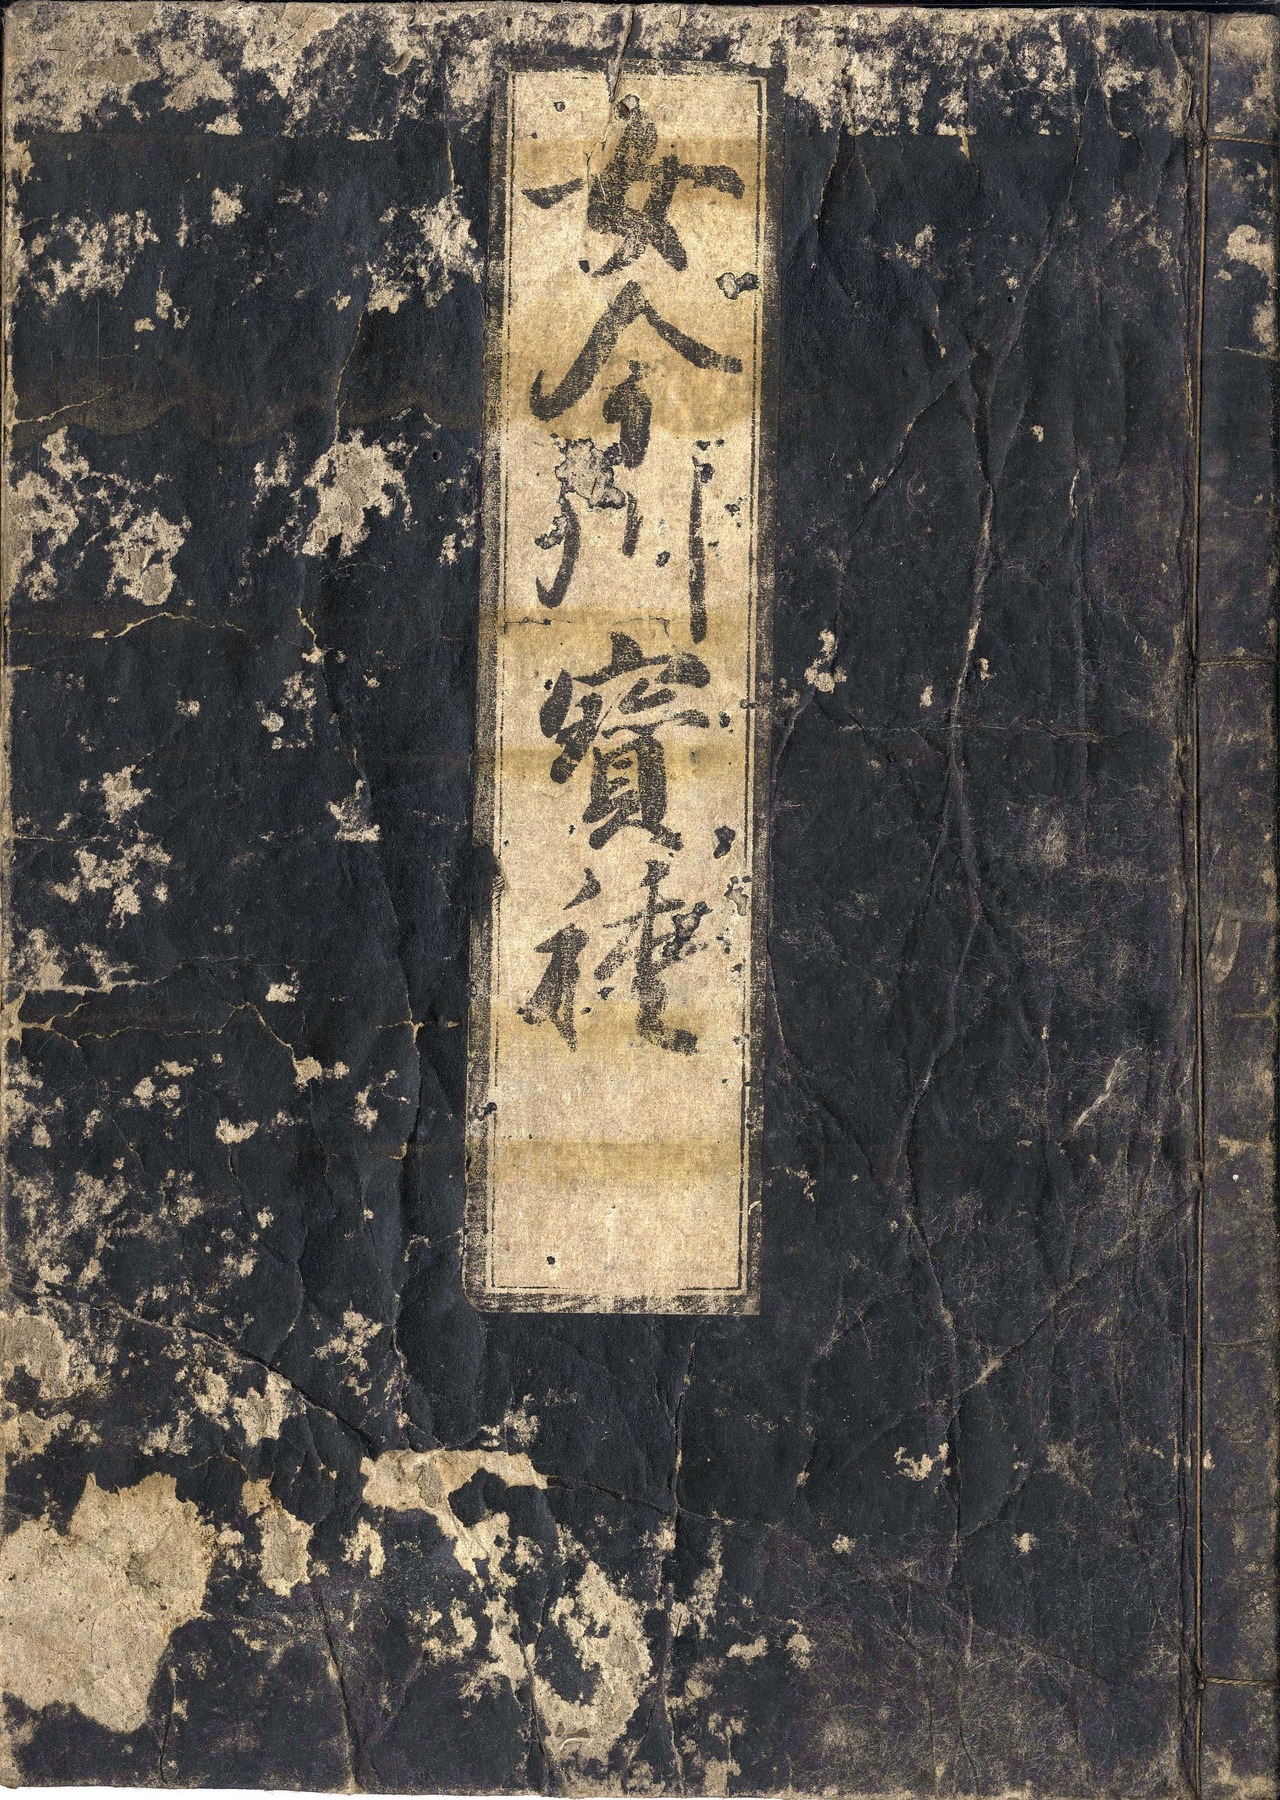 女今川寳種